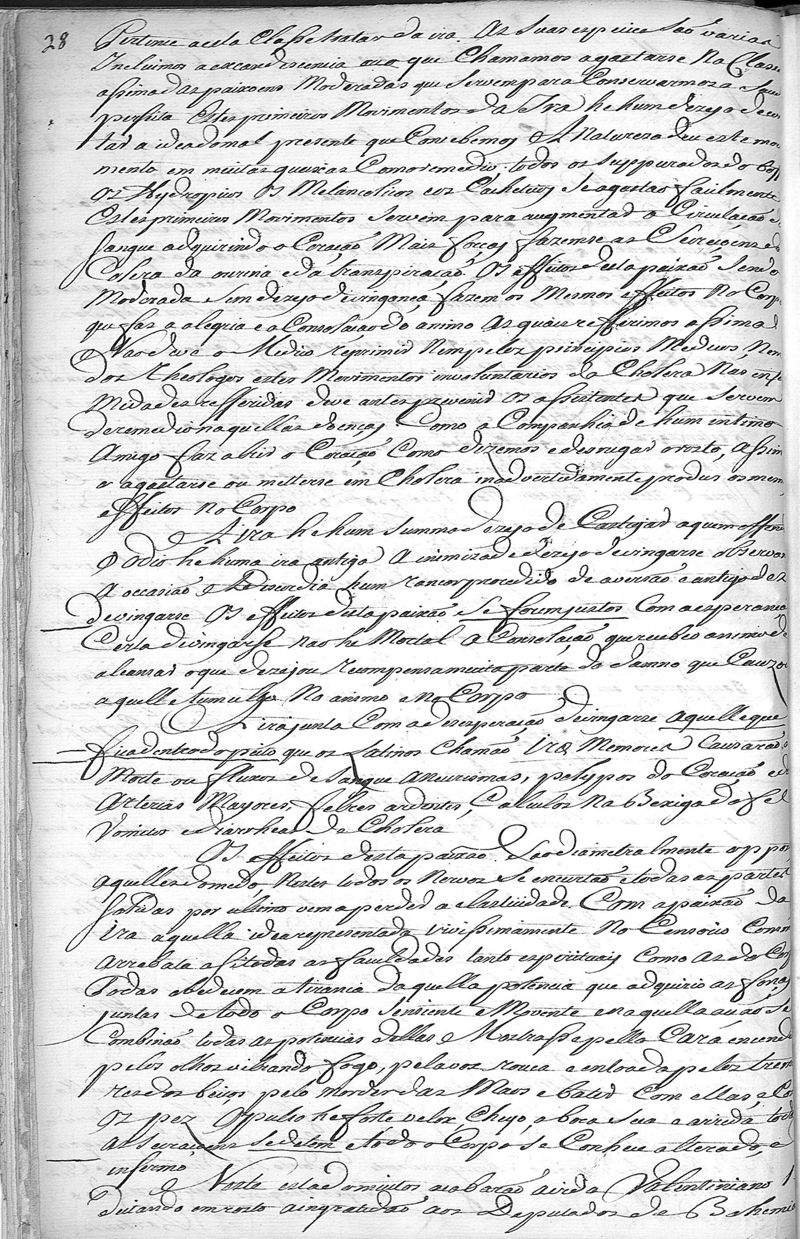 28
Pertence a esta Classe tratar da ira. As suas especies saõ varias
Incluimos a excandescencia a o que Chamamos agastarse na Classe
assima das paixoens Moderadas que servem para Conservarmos a Saude
perfeita Estes primeiros Movimentos da Ira he hum dezejo de
tar a idea do mal presente que Concebemos A Natureza deu este mo-
mento em muitas queixas Como remedio: todos os suppurados do bofe
os Hydropicos os Melancolicos e os Cacheticos se agastaõ facilmente
Estes primeiros Movimentos servem para augmentar a Circulaçaõ do
sangue adquirindo o Coraçaõ Mais forças fazemse as Secreçoens da
Colera da ourina e da transpiraçaõ Os effeitos desta paixaõ sendo
Moderada sem dezejo de vingança, fazem os Mesmos effeitos no Corpo
que faz a alegria e a Consolaçaõ do animo as quaes refferimos assima
Naõ deve o Medico reprimir nem pelos principios Medicos Nem
dos Theologos estes Movimentos involuntarios da Cholera Nas infer
midades refferidas deve antes prevenir os assistentes que servem
de remedio naquellas doenças Como a Companhia de hum intimo
Amigo faz abrir o Coraçaõ Como dizemos e desrugar o rosto, assim
o agastarse ou metterse em Cholera inadvertidamente produs os mesmos
effeitos no Corpo
A ira he hum summo dezejo de Castigar a quem offende
O odio he huma ira antiga A inimizade dezejo de vingarse observando
A occasiaõ A discordia hum rancor procedido de aversaõ e antigo dezejo
de vingarse Os effeitos desta paixaõ se forem justos Com a esperança
Certa de vingarse naõ he Mortal a Consolaçaõ que recebe o animo de
alcansar o que dezejou recompensa muita parte do damno que Cauzou
aquelle tumulto No animo e no Corpo
A ira junta Com a desesperaçaõ de vingarse aquelle que
fica dentro do peito que os Latinos chamaõ Iræ Memores Causaraõ a
Morte ou fluxos de sangue aneurismas, polypos do Coraçaõ e das
Arterias Mayores, febres ardentes, Calculos Na Bexiga do fel
Vomitos e diarrheas de Cholera
Os effeitos desta paixaõ saõ diametralmente oppostos
aquelles do medo, Nestes todos os Nervos se encurtaõ e todas as partes
solidas por ultimo vem a perder a elasticidade. Com a paixaõ da
ira aquella idea representada vivissimamente no Censorio Comum
Arrebata a si todas as faculdades tanto espirituaes Como as do Corpo
Todas obedecem a tirania daquella potencia que adquirio as forças
juntas de todo o Corpo Senciente e Movente e naquella acçaõ se
Combinaõ todas as potencias dellas e Mostrasse pella Cara encendida
pelos olhos vibrando fogo, pela voz rouca e entoada pelos trem
res dos beiços pelo morder das Maos e bater Com ellas, e Com
os pez O pulso he forte veloz cheyo, a boca seca e arrida todas
As secreçoens se detem e todo o Corpo se Conhece alterado, e
infermo
Neste estado muitos acabaraõ a vida Valentiniano 1
deitando em rosto a ingratidaõ aos Deputados de Bohemia